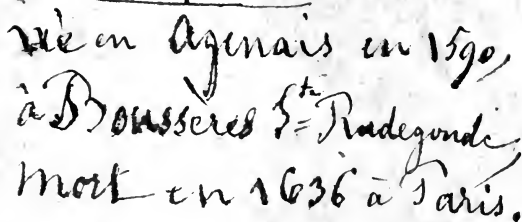 né en Agenais en 1590,
à Boussères Ste Radegonde,
mort en 1636 à Paris.